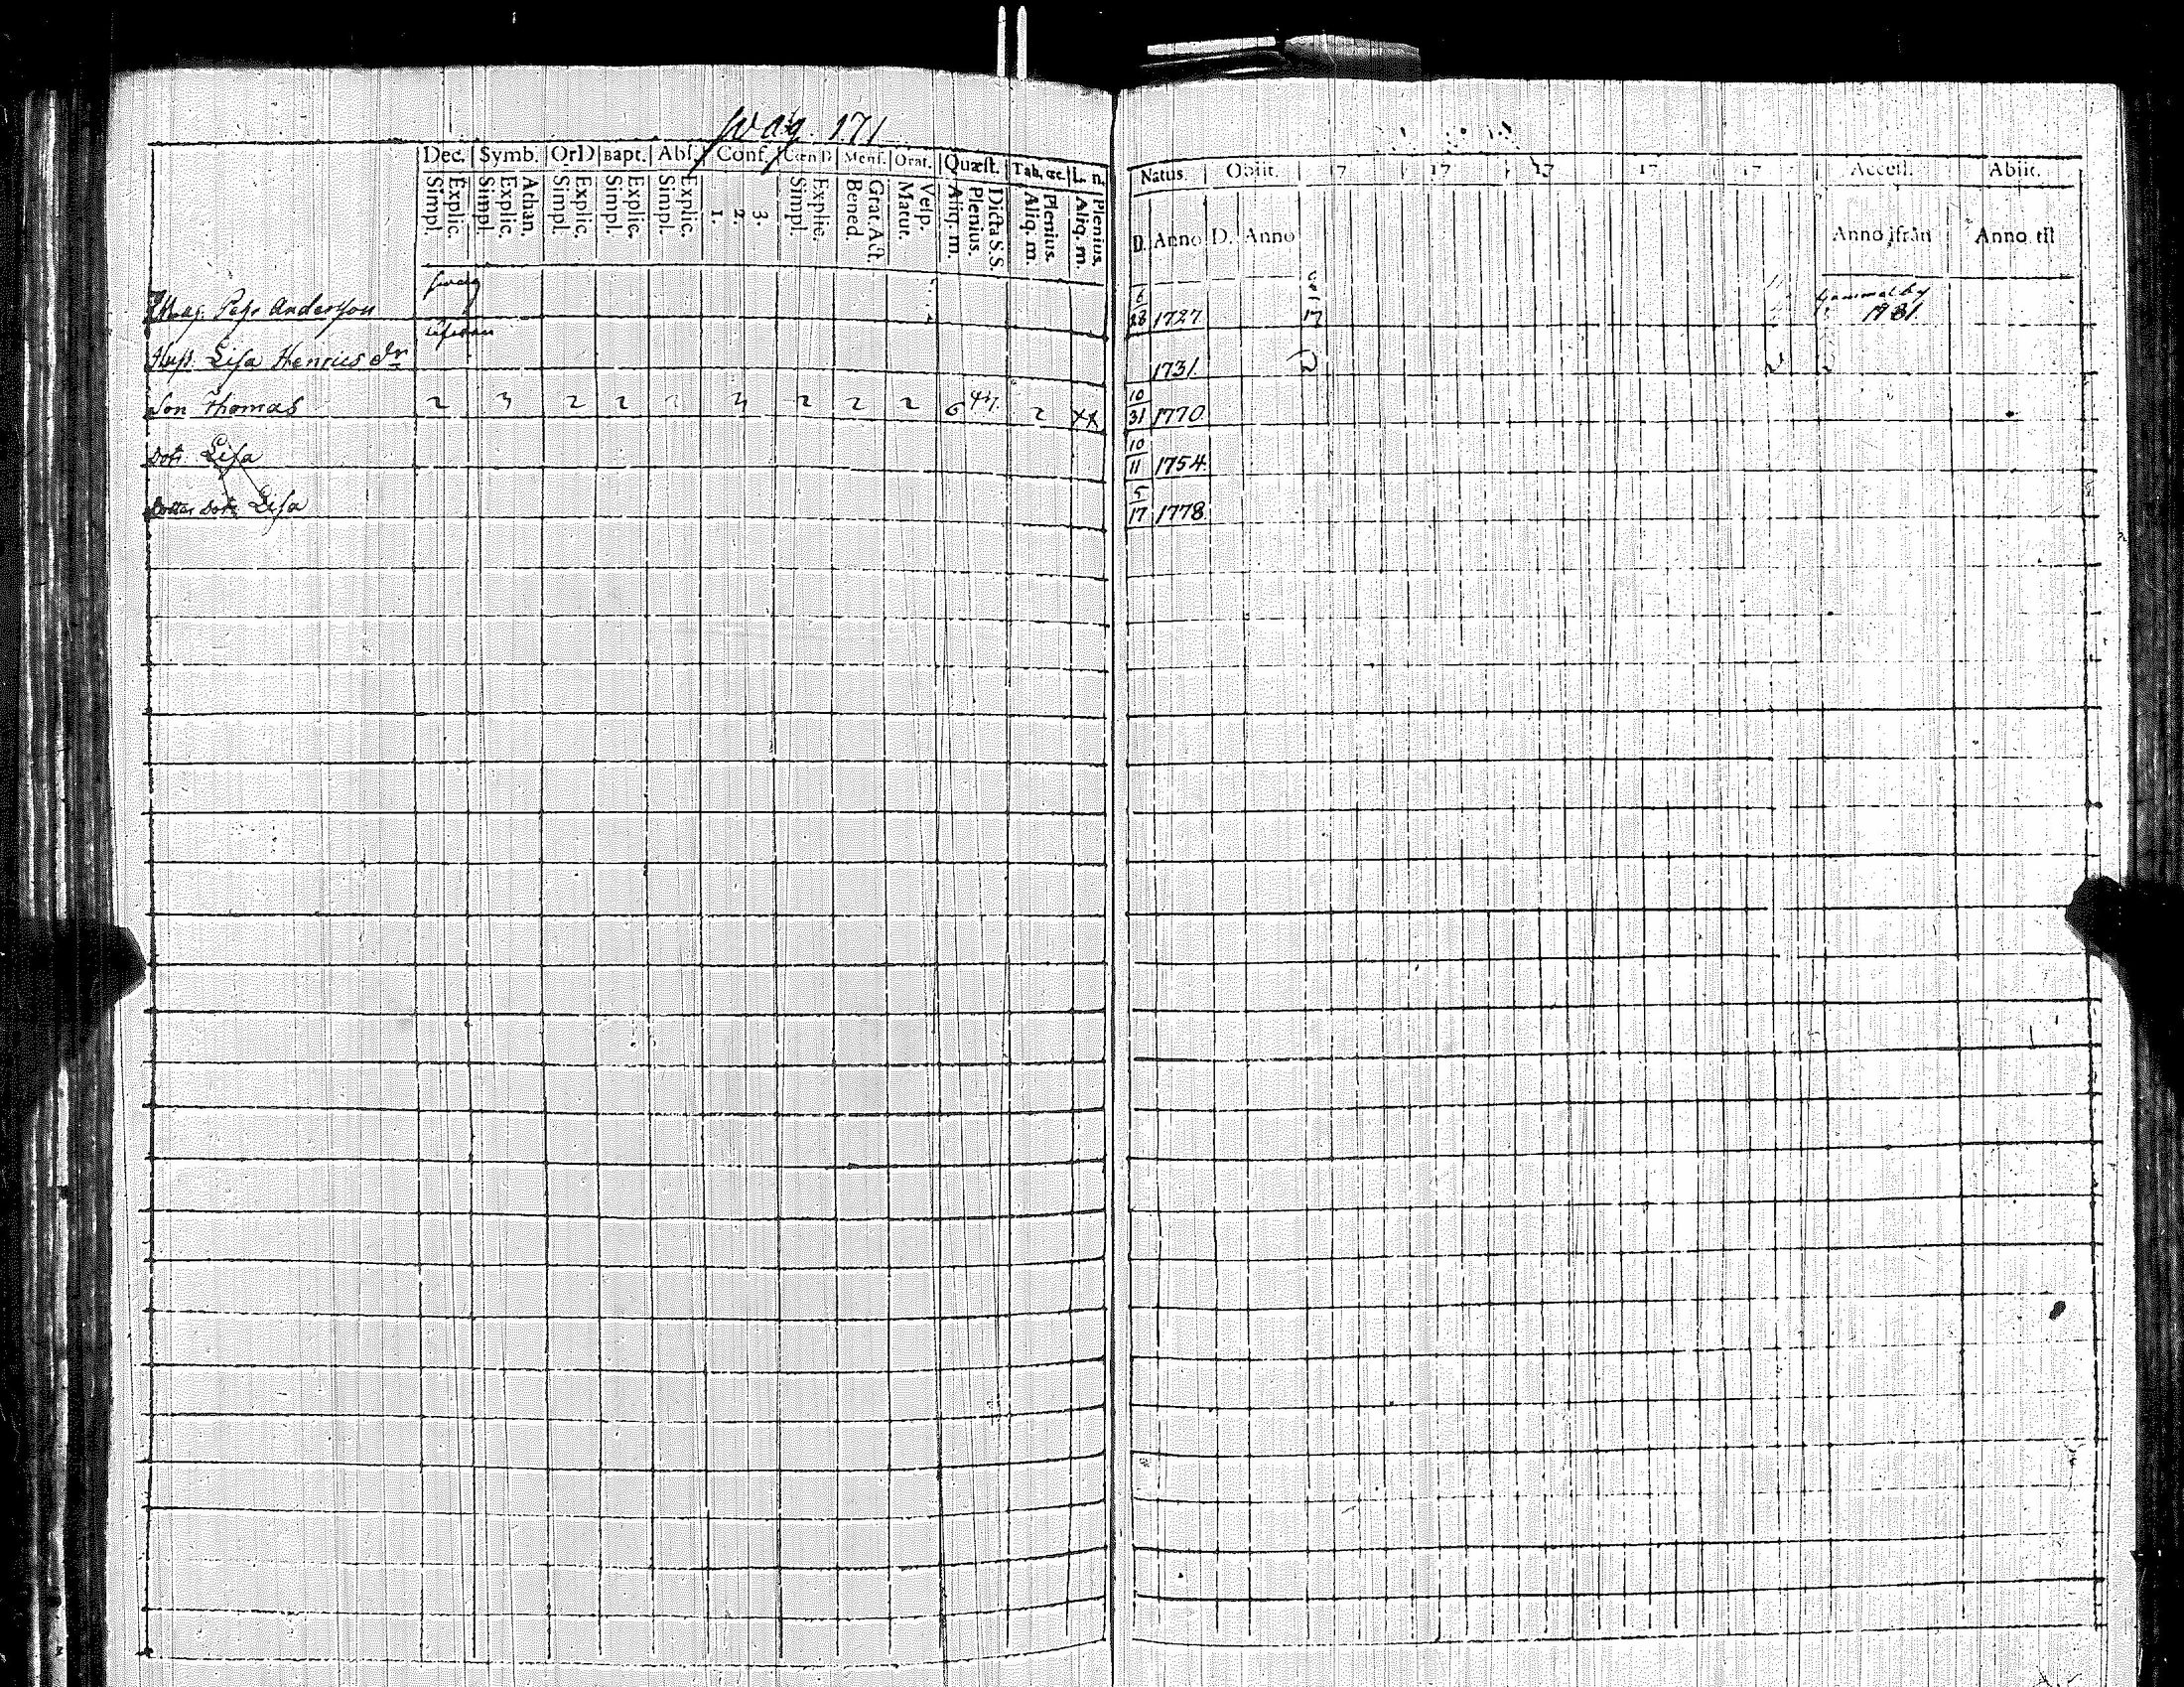 pag. 171
Dec. Symb. OrD Bapt. Abs. Conf. Cœn D Mens. Orat. Quæst. Tab. œc. L. n.
Simpl. Explic. Simpl. Explic. Athan. Simpl. Explic. Simpl. Explic. Simpl. Explic. 1. 2. 3. Simpl. Explic. Bened. Grat. Act. Matut. Vesp. Aliq. m. Plenius. Dicta S. S. Aliq. m. Plenius. Aliq. m. Plenius.
Natus. Obiit. 17 17 17 17 17 Access. Abiit.
D. Anno D. Anno Anno ifrån Anno til
Andersson 6 28 1727 Gammelby 1781
Hust. Lisa Henricsdr 1731
Son Thomas 2 3 2 2 2 2 2 2 xx 10 31 1770
Dotr. Lisa 10 11 1754
Dotter Dotr Lisa 5 17 1778